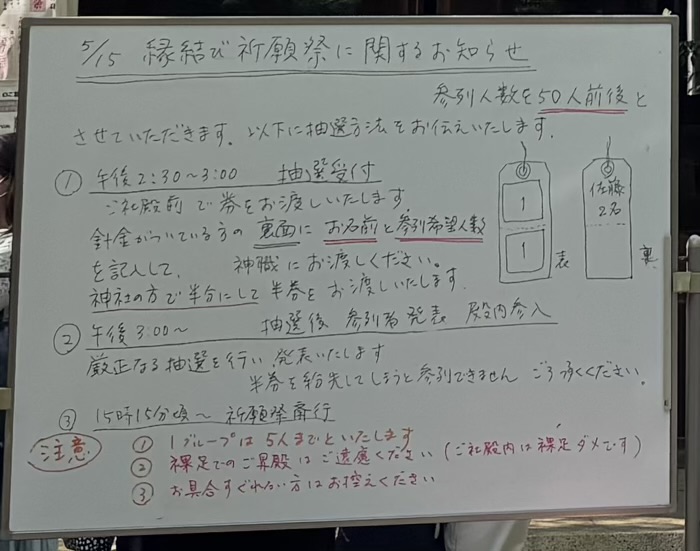 5/15 縁結び祈願祭に関するお知らせ
参列人数を50人前後と
させていただきます。以下に抽選方法をお伝えいたします。
① 午後2:30～3:00 抽選受付
ご社殿前で券をお渡しいたします。
針金がついている方の裏面にお名前と参列希望人数
を記入して、神職にお渡しください。
神社の方で半分にして半券をお渡しいたします。
1
1
表
佐藤
2名
裏
② 午後3:00～ 抽選後 参列者発表 殿内参入
厳正なる抽選を行い発表いたします
半券を紛失してしまうと参列できません ご了承ください。
③ 15時15分頃～ 祈願祭斎行
注意
① 1グループは5人までといたします
② 裸足でのご昇殿はご遠慮ください(ご社殿内は裸足ダメです)
③ お具合すぐれない方はお控えください